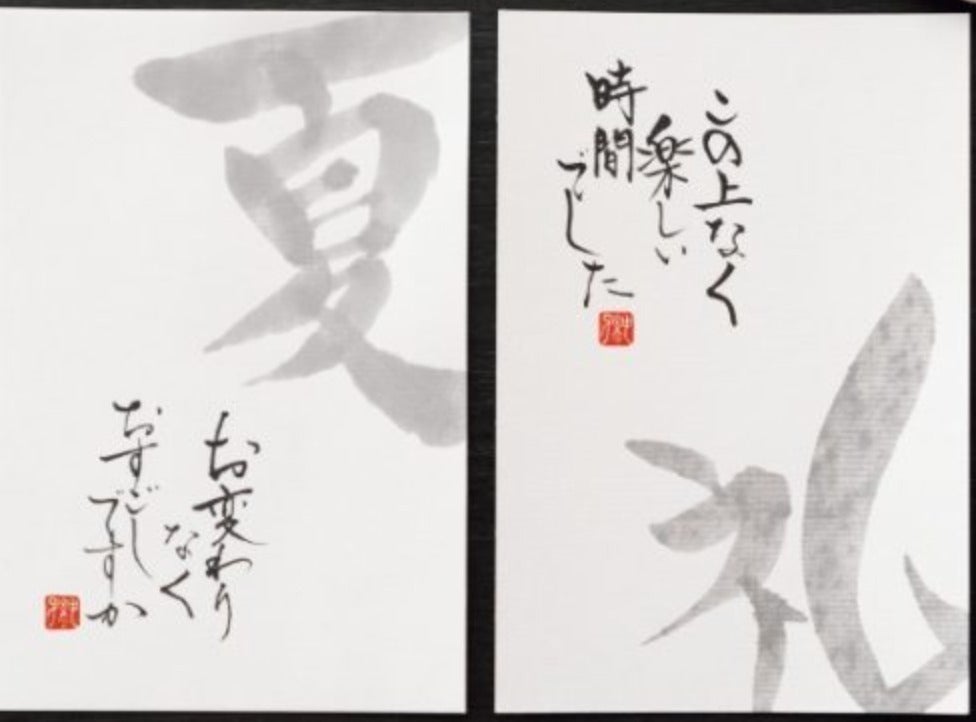 夏
お変わり
なく
おすごし
ですか
この上なく
楽しい
時間
でした
礼